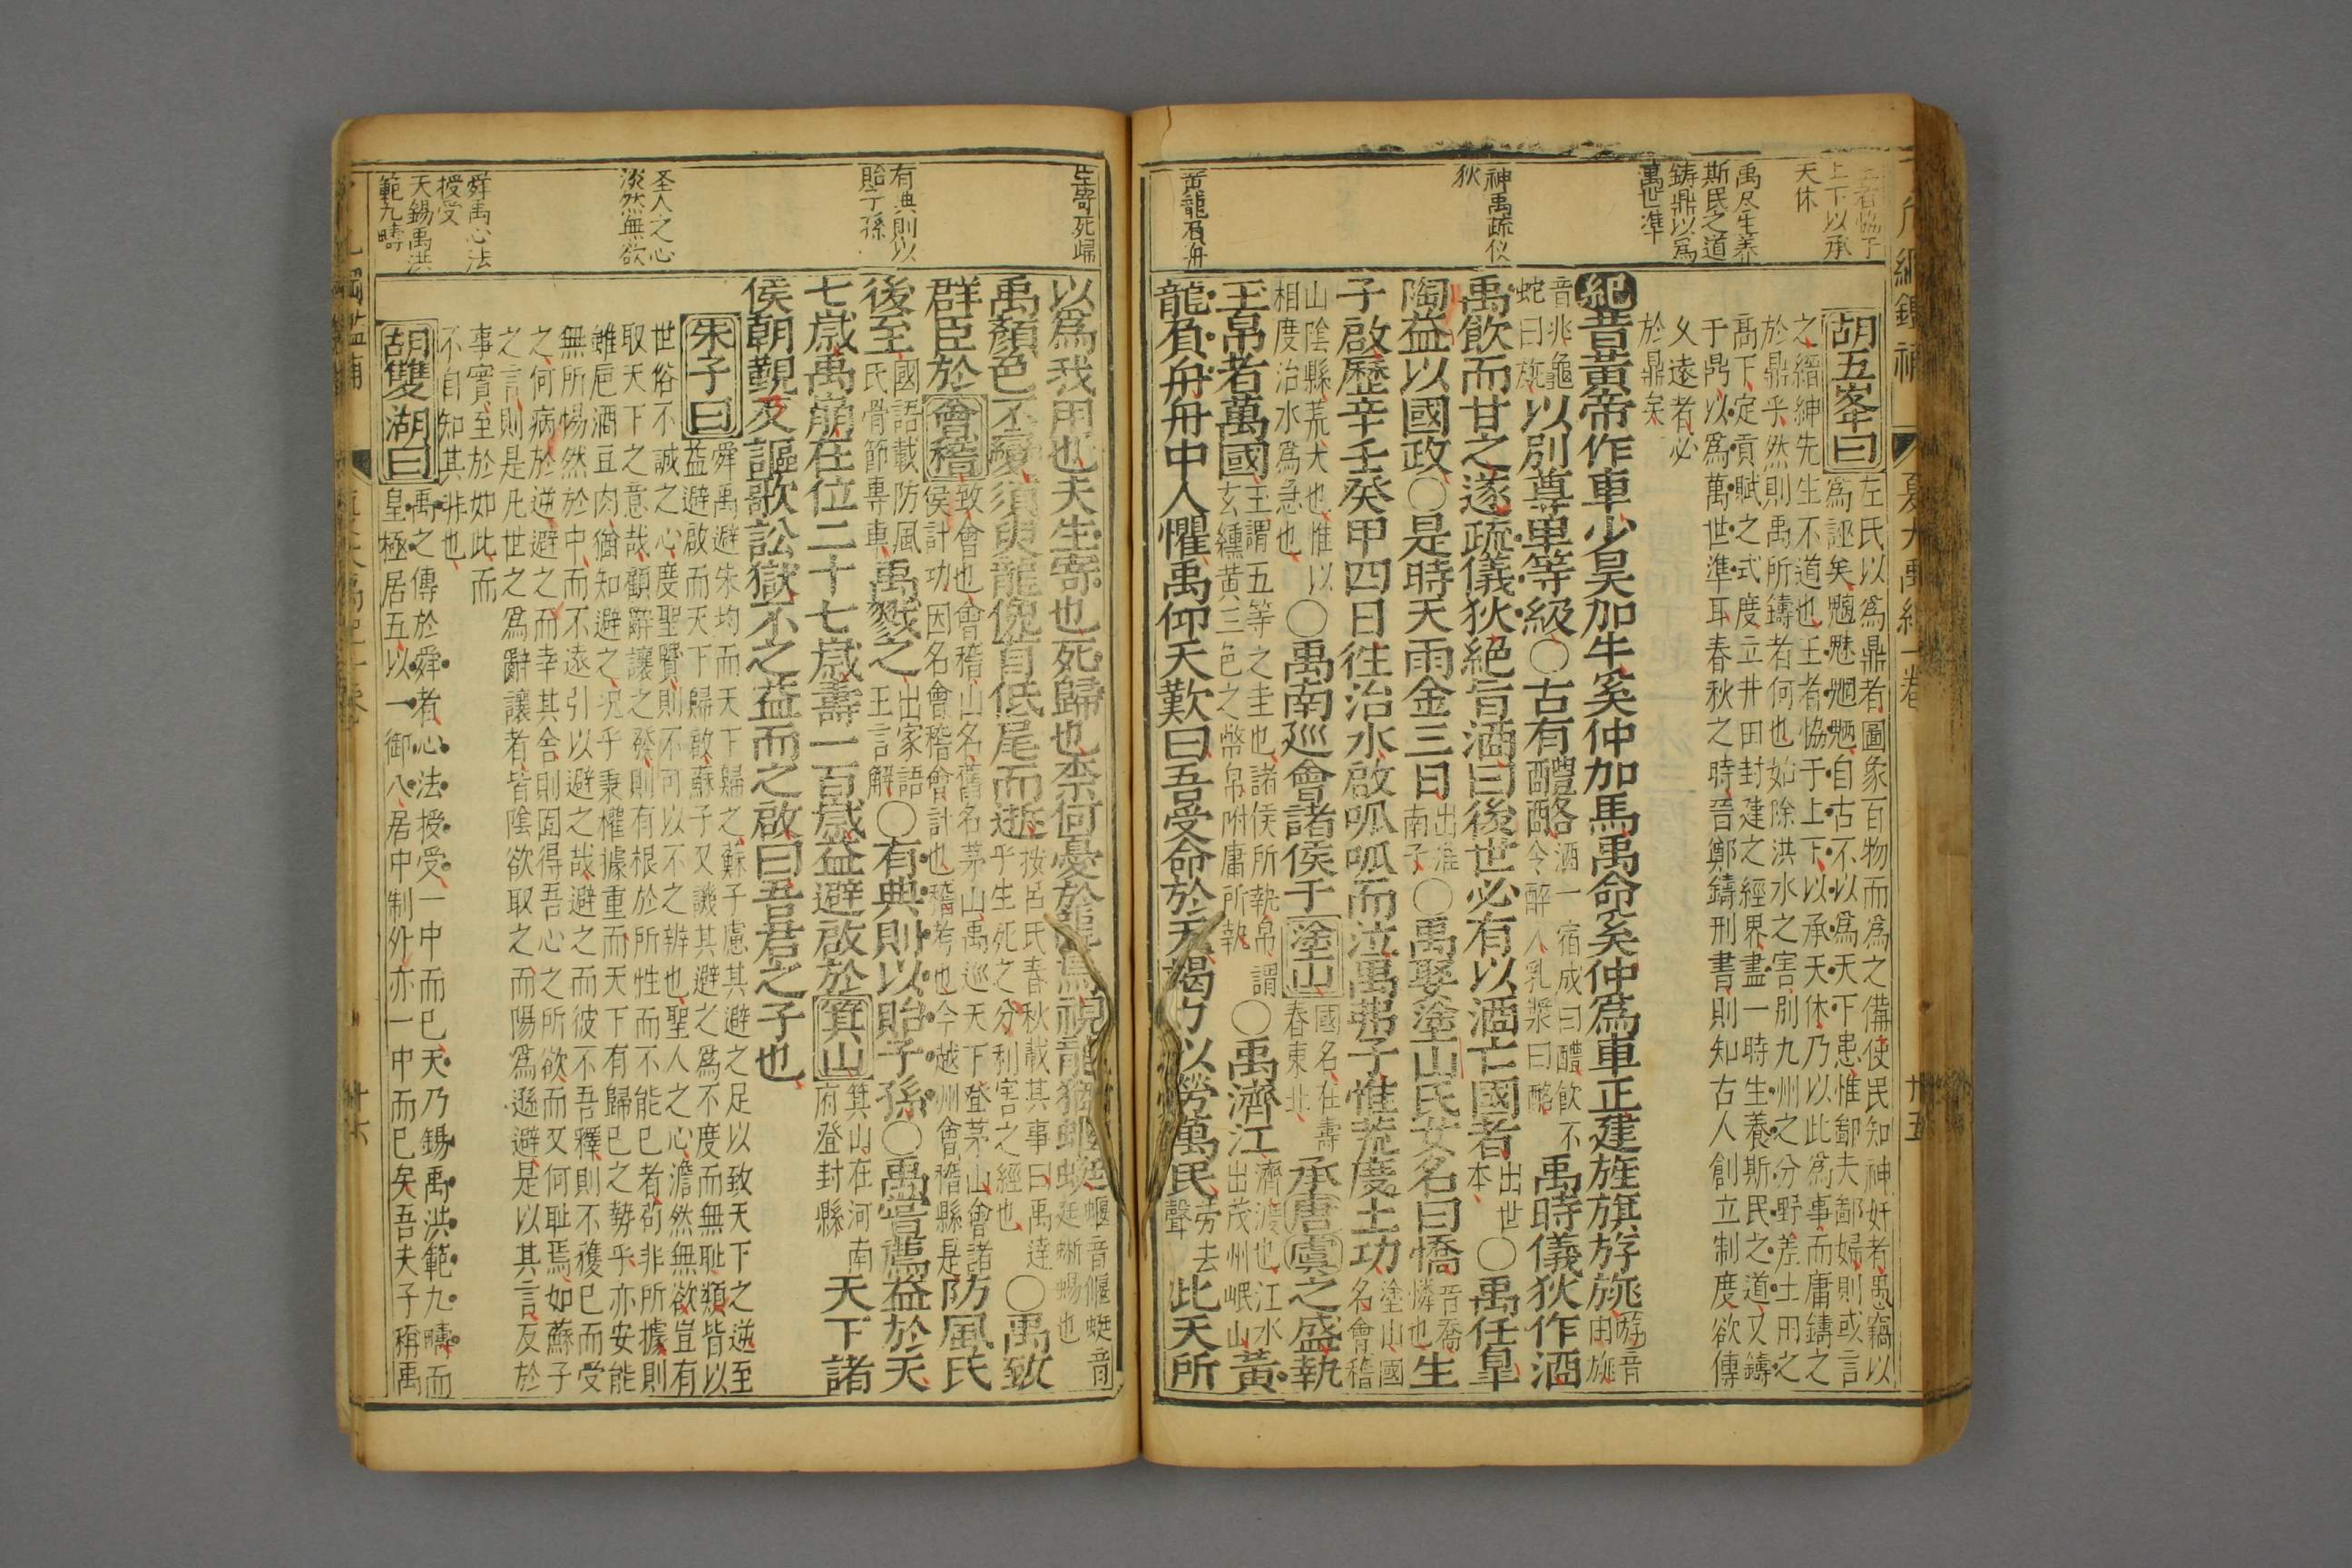 上下以承
天休
禹尽生养
斯民之道
鋳鼎以為
萬世準
神禹疏仪
狄
黄龍負舟
胡五峯曰
左氏以爲鼎者圖象百物而爲之備使民知神奸者愚竊以
爲誣矣魑魅魍魎自古不以爲天下患惟鄙夫鄙婦則或言
之縉紳先生不道也王者協于上下以承天休乃以此爲事而庸鑄之
於鼎乎然則禹所鑄者何也始除洪水之害別九州之分野差土田之
高下定貢賦之式度立井田封建之經界盡一時生養斯民之道又鑄
于鼎以爲萬世準耳春秋之時晉鄭鑄刑書則知古人創立制度欲傳
久遠者必
於鼎矣
紀昔黃帝作車少昊加牛奚仲加馬禹命奚仲爲車正建旌旗斿旐斿音由旐
音兆龜蛇曰旐以別尊卑等級〇古有醴酪酒一宿成曰醴飲不令醉人乳漿曰酪禹時儀狄作酒
禹飲而甘之遂疏儀狄絕旨酒曰後世必有以酒亡國者出世本〇禹任皐
陶益以國政〇是時天雨金三日出淮南子〇禹娶塗山氏女名曰憍音喬憐也生
子啟歷辛壬癸甲四日往治水啟呱呱而泣禹弗子惟荒度土功塗山國名會稽
山陰縣荒大也惟以相度治水爲急也〇禹南巡會諸侯于塗山國名在壽春東北承唐虞之盛執
玉帛者萬國玉謂五等之圭也諸侯所執帛謂玄纁黃三色之幣帛附庸所執〇禹濟江濟渡也江水出茂州岷山黃
龍負舟舟中人懼禹仰天歎曰吾受命於天竭力以勞萬民勞去聲此天所
生寄死歸
有典則以
貽子孫
圣人之心
淡然無欲
舜禹心法
授受
天錫禹洪
範九疇
以爲我用也夫生寄也死歸也柰何憂於龍焉視龍猶蝘蜓蝘音偃蜓音
廷蜥蜴也禹顏色不變須臾龍俛首低尾而逝按呂氏春秋載其事曰禹達乎生死之分利害之經也〇禹致
群臣於會稽致會也會稽山名舊名茅山禹巡天下登茅山會諸侯計功因名會稽會計也稽考也今越州會稽縣是防風氏
後至國語載防風氏骨節專車禹戮之出家語王言解〇有典則以貽子孫〇禹嘗薦益於天
七歲禹崩在位二十七歲壽一百歲益避啟於箕山箕山在河南府登封縣天下諸
侯朝覲及謳歌訟獄不之益而之啟曰吾君之子也
朱子曰
舜禹避朱均而天下歸之蘇子慮其避之足以致天下之逆至
益避啟而天下歸啟蘇子又譏其避之爲不度而無耻類皆以
世俗不誠之心度聖賢則不可以不之辨也聖人之心澹然無欲豈有
取天下之意哉顧辭讓之發則有根於所性而不能已者苟非所據則
雖巵酒豆肉猶知避之况乎秉權據重而天下有歸已之勢乎亦安能
無所惕然於中而不遠引以避之哉避之而彼不吾釋則不獲已而受
之何病於逆避之而幸其舍則固得吾心之所欲而又何耻焉如蘇子
之言則是凡世之爲辭讓者皆陰欲取之而陽爲遜避是以其言反於
事實至於如此而
不自知其非也
胡雙湖曰
禹之傳於舜者心法授受一中而已天乃錫禹洪範九疇而
皇極居五以一御八居中制外亦一中而已矣吾夫子稱禹